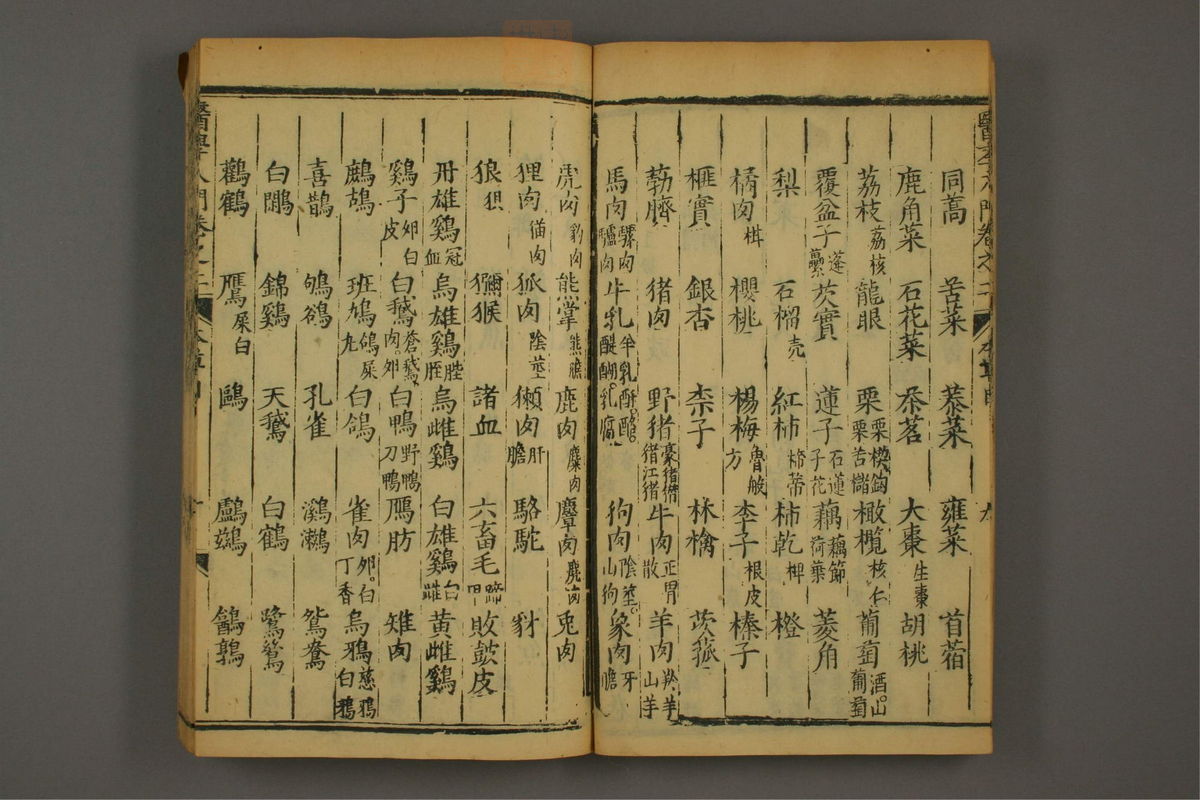 同蒿 苦菜 蓁菜 雍菜 首蓿
鹿角菜 石花菜 茶茗 大棗 生棗 胡桃
荔枝 荔核 龍眼 栗 栗楔 栗苦 橄欖 核仁 葡萄 酒。山葡萄
覆盆子 蓬蘽 芡實 蓮子 石蓮子花 藕 藕節 荷藥 菱角
梨 石榴 壳 紅柿 柿蒂 柿乾 椑 橙
橘肉 櫻桃 楊梅 李子 根皮 榛子
榧實 銀杏 柰子 林檎 茨菰
葧臍 猪肉 野猪 豪猪 江猪 牛肉 正胃散 羊肉 羚羊 山羊
馬肉 騾肉 驢肉 牛乳 羊乳 酥。酪。醍醐。乳腐 狗肉 陰莖。山狗 象肉 牙膽
虎肉 豹肉 熊掌 熊膽 鹿肉 麋肉 麞肉 麂肉 兎肉
狸肉 猫肉 狐肉 陰莖 獺肉 肝膽 駱駝 豺
狼 狽 獼猴 諸血 六畜毛 蹄甲 敗鼓皮
丹雄鷄 冠血 烏雄鷄 烏雌鷄 白雄鷄 黄雌鷄
鷄子 卵白皮 白鵝 蒼鵝 肉。卵 白鴨 野鴨 刀鴨 鴈肪 雉肉
鷓鴣 班鳩 鴿屎 白鴿 雀肉 卵。白丁香 烏鴉 慈鴉 白鴉
喜鵲 鴝鵒 孔雀 鸂鶒 鴛鴦
白鷴 錦鷄 天鵝 白鶴 鷺鷥
鸛鶴 鷹 屎白 鷗 鸕鷀
醫學入門卷之二